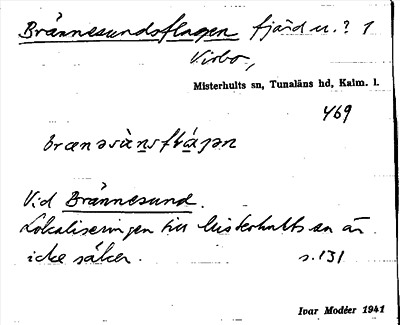 Brännesundsflagen fjärd u.? 1
Virbo,
Misterhults sn, Tunaläns hd, Kalm. l.
469
brænəsùn̲sflá̲gən
Vid Brännesund.
Lokaliseringen till Misterhults sn är
icke säker. s. 131
Ivar Modéer 1941